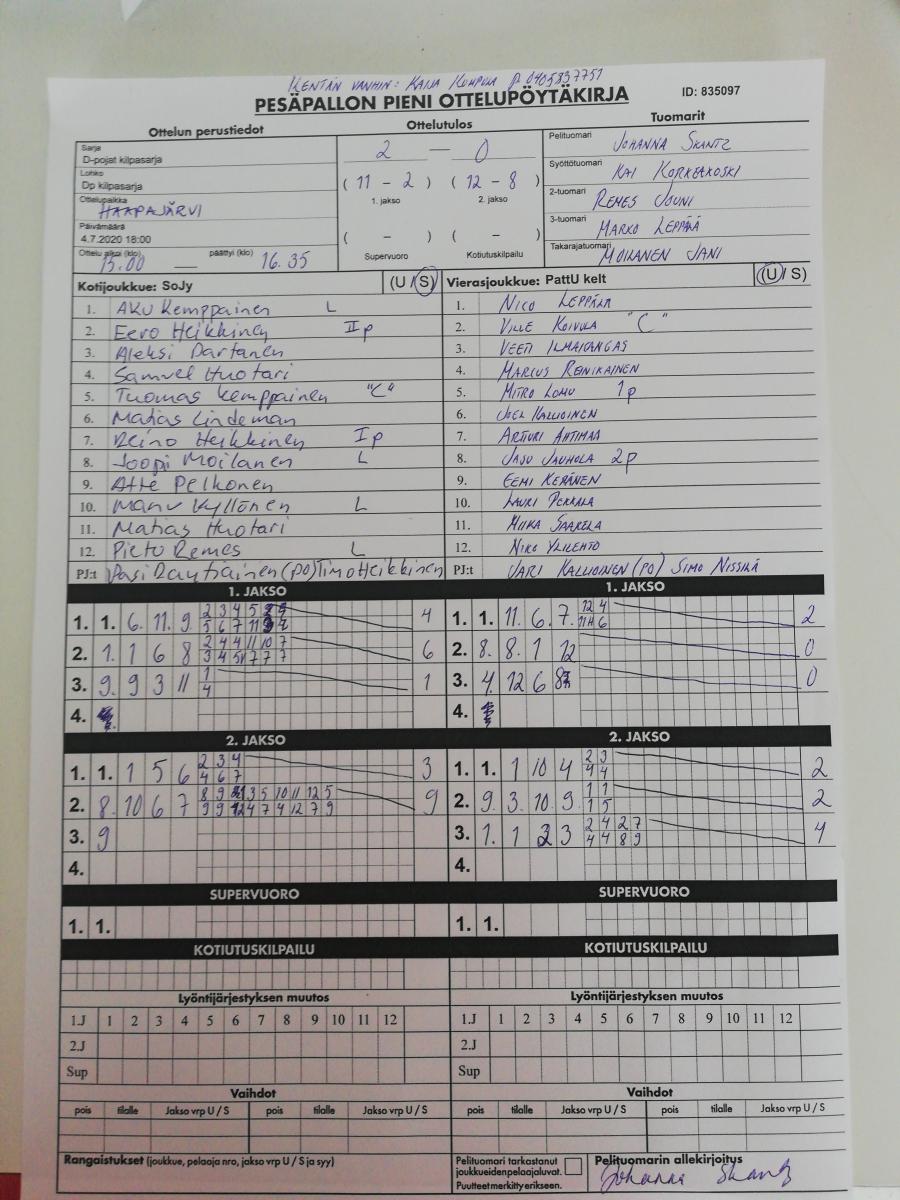 KENTÄN VANHIN: KAIJA KUMPULA P. 0405837751
PESÄPALLON PIENI OTTELUPÖYTÄKIRJA ID: 835097
Ottelun perustiedot Ottelutulos Tuomarit
Sarja
D-pojat kilpasarja
Lohko
Dp kilpasarja
Ottelupaikka
HAAPAJÄRVI
Päivämäärä
4.7.2020 18:00
Ottelu alkoi (klo) päättyi (klo)
15.00 — 16.35
2 — 0
( 11 - 2 ) ( 12 - 8 )
1. jakso 2. jakso
( - ) ( - )
Supervuoro Kotiutuskilpailu
Pelituomari JOHANNA SKANTZ
Syöttötuomari KAI KORKEAKOSKI
2-tuomari REMES JOUNI
3-tuomari MARKO LEPPÄÄ
Takarajatuomari MOILANEN JANI
Kotijoukkue: SoJy (U / S)
1. AKU Kemppainen L
2. Eero Heikkinen II p
3. Aleksi Partanen
4. Samuel Huotari
5. Tuomas Kemppainen "C"
6. Matias Lindeman
7. Reino Heikkinen I p
8. Joopi Moilanen L
9. Atte Pelkonen
10. Manu Kyllönen L
11. Matias Huotari
12. Pietu Remes L
PJ:t Pasi Rautiainen (PO) Timo Heikkinen
Vierasjoukkue: PattU kelt (U / S)
1. NICO LEPPÄLÄ
2. VILLE KOIVULA "C"
3. VEETI ILMAKANGAS
4. MARCUS REINIKAINEN
5. MITRO LOHU 1p
6. JOEL KALLIOINEN
7. ARTTURI AHTIMAA
8. JASU JAUHOLA 2p
9. EEMI KERÄNEN
10. LAURI PEKKALA
11. MIIKA SAARELA
12. NIKO YLILEHTO
PJ:t JARI KALLIOINEN (PO) SIMO NISSILÄ
1. JAKSO
1. 1. 6 11 9 4
2. 1. 1 6 8 6
3. 9. 9 3 11 1
4.
1. JAKSO
1. 1. 11. 6. 7. 2
2. 8. 8. 1 12 0
3. 4. 12 6 0
4.
2. JAKSO
1. 1. 1 5 6 2 3 4 3
4 6 7
2. 8. 10 6 7 9
3. 9
4.
2. JAKSO
1. 1. 1 10 4 2 3 2
4 4
2. 9. 3. 10. 9. 1 1 2
1 5
3. 1. 1 2 3 2 4 2 7 4
4 4 8 9
4.
SUPERVUORO
1. 1.
SUPERVUORO
1. 1.
KOTIUTUSKILPAILU
KOTIUTUSKILPAILU
Lyöntijärjestyksen muutos
1.J 1 2 3 4 5 6 7 8 9 10 11 12
2.J
Sup
Lyöntijärjestyksen muutos
1.J 1 2 3 4 5 6 7 8 9 10 11 12
2.J
Sup
Vaihdot
pois tilalle Jakso vrp U / S pois tilalle Jakso vrp U / S
Vaihdot
pois tilalle Jakso vrp U / S pois tilalle Jakso vrp U / S
Rangaistukset (joukkue, pelaaja nro, jakso vrp U / S ja syy)
Pelituomari tarkastanut
joukkueiden pelaajaluvat.
Puutteet merkitty erikseen.
Pelituomarin allekirjoitus
Johanna Skantz